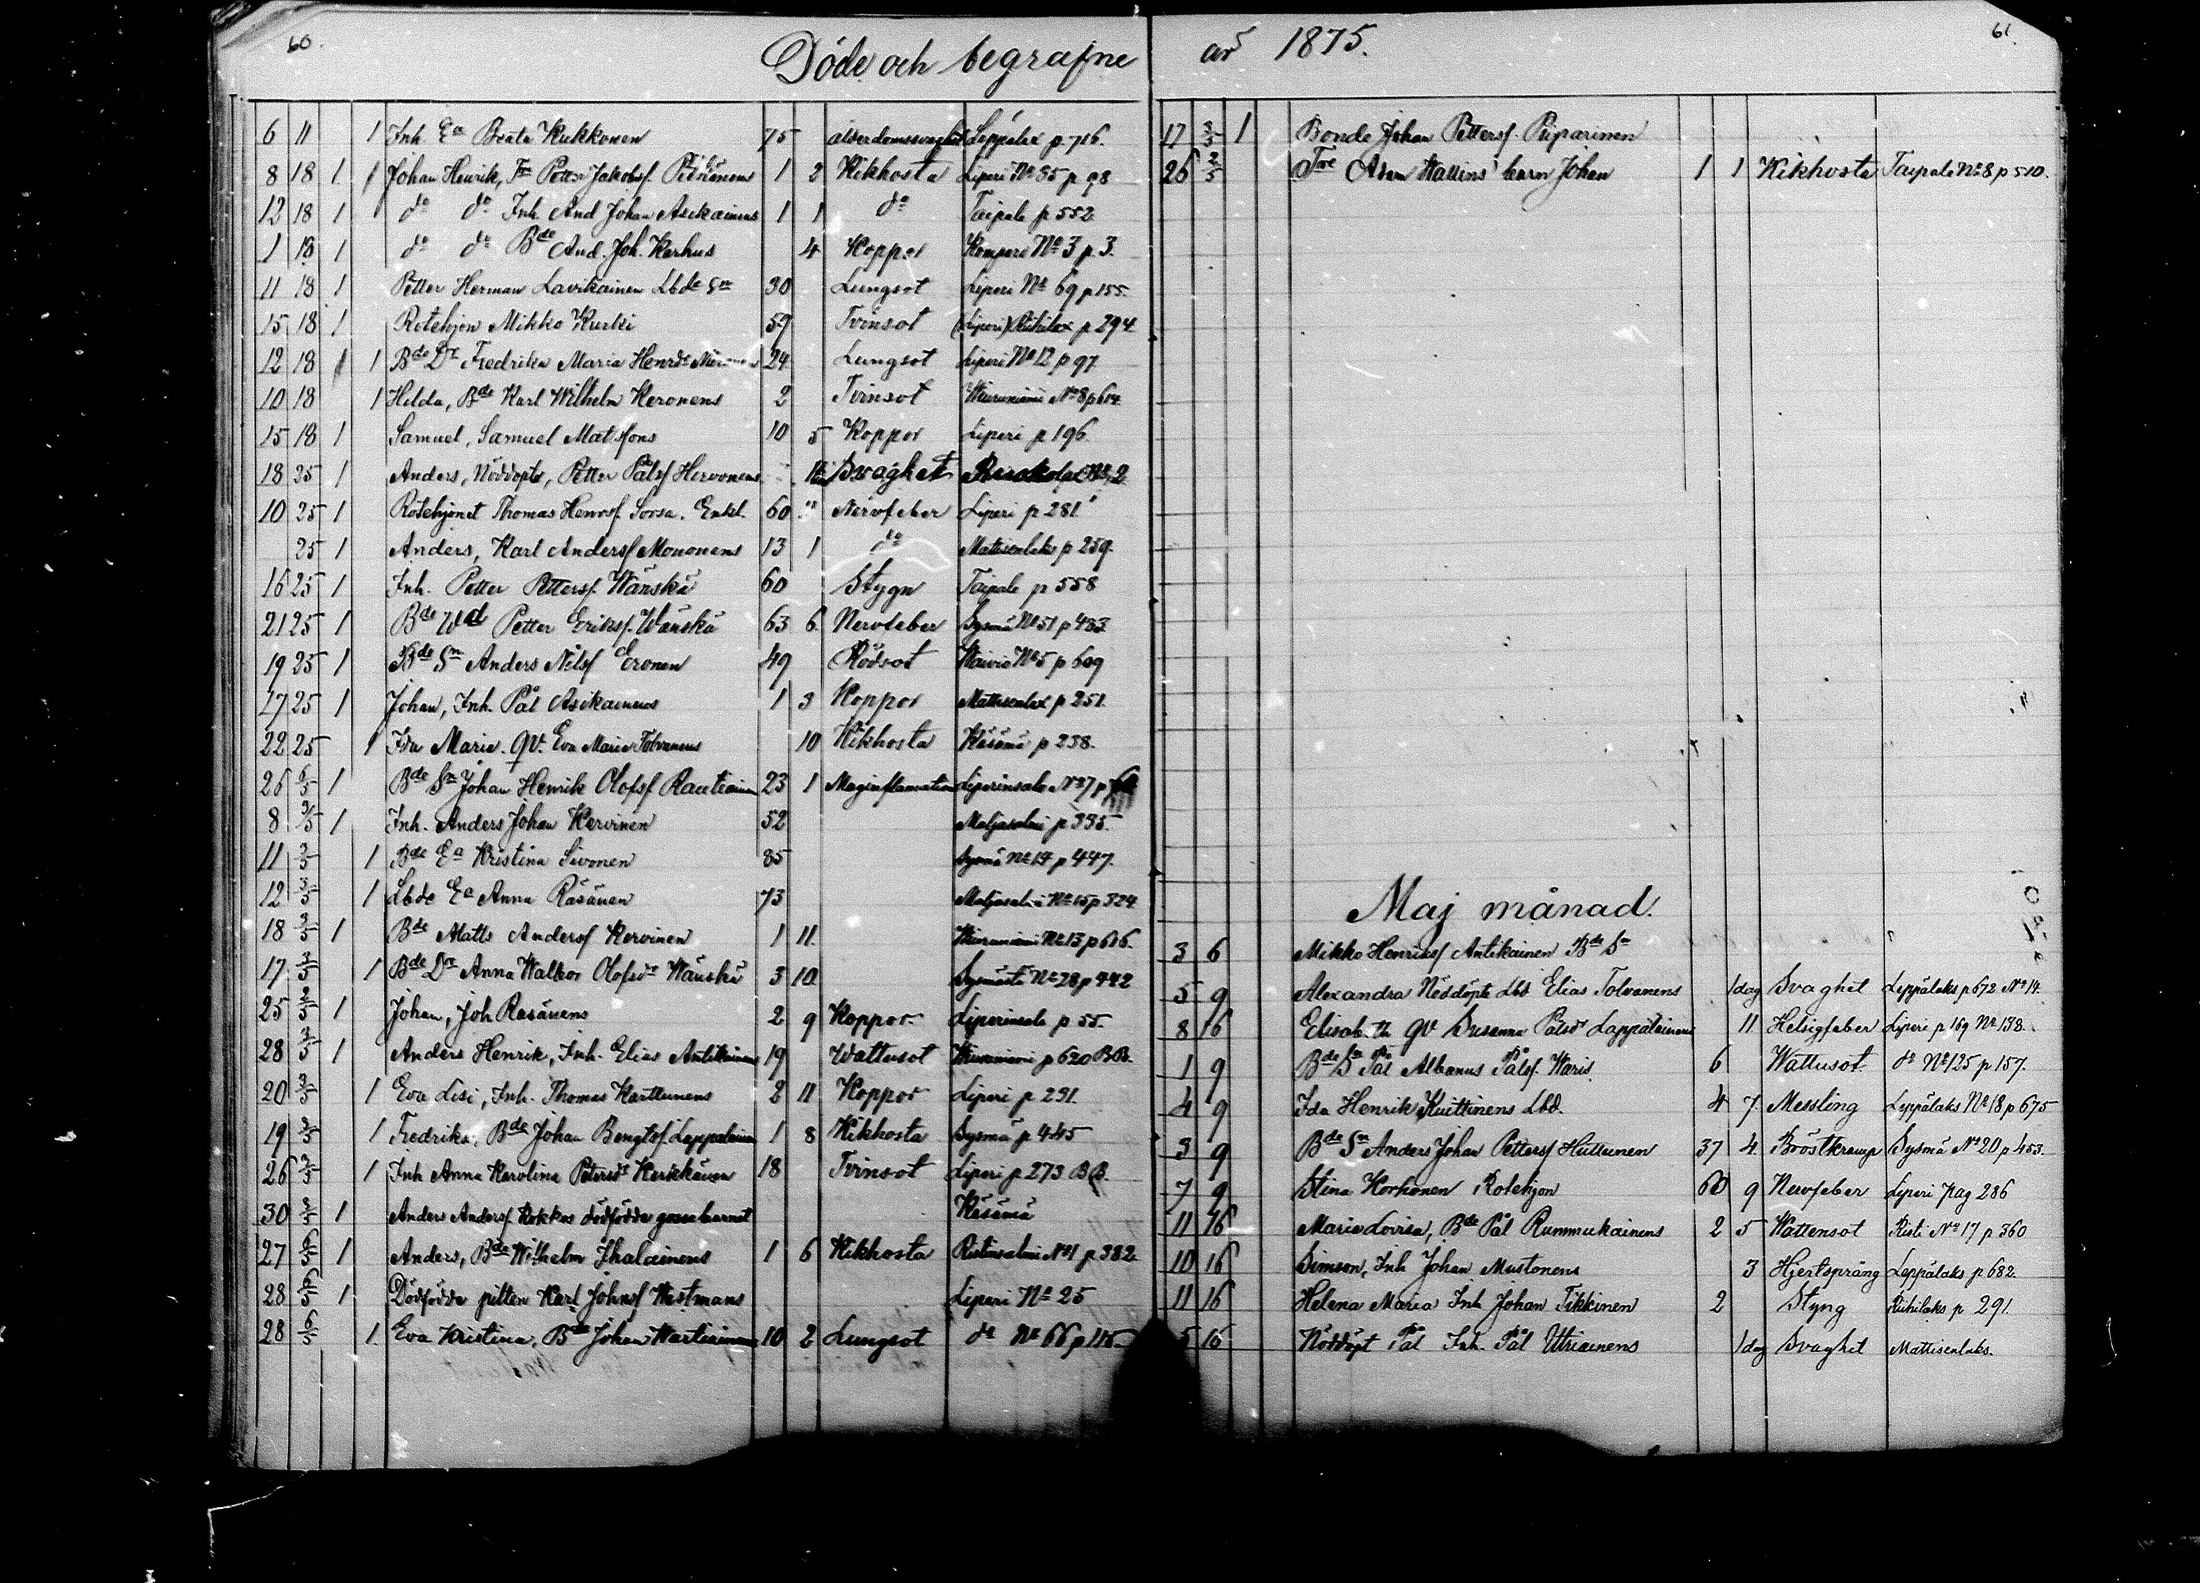 60.
Döde och begrafne
6 11 1 Inh. Ea Beata Kukkonen 75 ålderdomssvaghet Leppälax p. 716.
8 18 1 1 Johan Henrik, Petter Jakobsf. 1 2 Kikhosta Liperi No 35 p 98
12 18 1 do do Inh. And Johan Asikainens 1 1 do Taipale p 552
1 18 1 do do Bde And. Joh. Karhus 4 Koppor Komperi No 3 p. 3.
11 18 1 Petter Herman Lavikainen Lbde Sn 30 Lungsot Liperi No 69 p 155.
15 18 1 Rotehjon Mikko Kurki 59 Tvinsot (Liperi) Riihilax p 294
12 18 1 Bde Dr Fredrika Maria Henrdr 24 Lungsot Liperi No 12 p 97
10 18 1 Hilda, Bde Karl Wilhelm Keronens 2 Tvinsot Wiiniemi No 8 p 614
15 18 1 Samuel, Samuel Matsfons 10 5 Koppor Liperi p 196
18 25 1 Anders, Nöddöpte, Petter Pålsf Hervonens Svaghet No 2
10 25 1 Rotehjonet Thomas Henrsf. Sorsa. Enkl. 60 " Nervfeber Liperi p 281
25 1 Anders, Karl Andersf Mononens 13 1 do Mattisenlaks p 259.
16 25 1 Inh. Petter Pettersf. Wänskä 60 Stygn Taipale p 558
21 25 1 Bde Wd Petter Eriksf. Wänskä 63 6 Nervfeber Sysmä No 51 p 483
19 25 1 Bde Sn Anders Nilsf Eronen 49 Rödsot Waivio No 5 p 609
17 25 1 Johan, Inh. Pål Asikainens 1 3 Koppor Mattisenlax p 251.
22 25 1 Ida Maria. Qv. Eva Maria Tolvanens 10 Kikhosta Käsämä p 238.
26 6/5 1 Bde Sn Johan Henrik Olofsf Rautiainen 23 1 Maginflamation Liperinsalo No 37 p
8 2/5 1 Inh. Anders Johan Kervinen 52 Maljasalmi p 335.
11 2/5 1 Bde Ea Kristina Sivonen 85 Sysmä No 14 p 447.
12 2/5 1 Lbde Ea Anna Räsänen 73 Maljasalmi No 15 p 324
18 2/5 1 Bde Matts Andersf Kervinen 1 11. Wiiniemi No 13 p 616.
17 2/5 1 Bde Dr Anna Walbor Olofsdr Wänskä 3 10 Sysmästä No 28 p 442
25 2/5 1 Johan, Joh Räsänens 2 9 Koppor Liperinsalo p 55.
28 2/5 1 Anders Henrik, Inh. Elias Antikainens 19 Wattusot p 620 B.B.
20 2/5 1 Eva Lisi, Inh. Thomas Karttunens 2 11 Koppor Liperi p 291.
19 2/5 1 Fredrika, Bde Johan Bengtsf. Leppalainen 1 8 Kikhosta Sysmä p 445
26 2/5 1 Inh Anna Karolina Petersdr Kerkkänen 18 Tvinsot Liperi p 273 BB.
30 1 Anders Andersf. Kokkos dödfödde gossebarnet Käsämä
27 1 Anders, Bde Wilhelm Ihalainens 1 6 Kikhosta Ristinsalmi No 1 p 382
28 1 Dödfödde pilten Karl Johnsf Westmans Liperi No 25
28 1 Eva Kristina, Bde Johan Wartiainens 10 2 Lungsot do No 66 p 115.
61.
år 1875.
17 2/5 1 Bonde Johan Pettersf. Piiparinen
26 2/5 Adam Wallins' barn Johan 1 1 Kikhosta Taipale No 8 p 510.
Maj månad.
3 6 Mikko Henriksf Antikainen Bde Sn
5 9 Alexandra Nöddöpte Lbd Elias Tolvanens 1 dag Svaghet Leppälaks p 672 No 14.
8 16 Elisabeth Qv Susanna Pålsdr Lappalainens 11 Helsigfeber Liperi p 169 No 138.
1 9 Bde Sn Pål Albanus Pålsf. Waris 6 Wattusot do No 125 p 157.
4 9 Ida Henrik Kuittinens Lbd. 4 7 Messling Leppälaks No 18 p 675
3 9 Bde Sn Anders Johan Pettersf Hiltunen 37 4 Bröstkramp Sysmä No 20 p 453.
7 9 Stina Korhonen Rotehjon 60 9 Nervfeber Liperi pag 286
11 16 Maria Lovisa, Bde Pål Rummukainens 2 5 Wattensot Risti No 17 p 360
10 16 Simson, Inh Johan Mustonens 3 Hjertsprång Leppälaks p 682.
11 16 Helena Maria Inh Johan Tikkinen 2 Styng Riihilaks p 291.
5 16 Nöddöpt Pål Inh. Pål Utriainens 1 dag Svaghet Mattisenlaks.